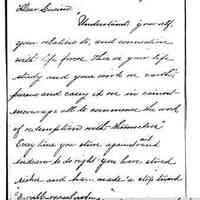 Dear Lucine
"Understand yourself
your relations to, and connection
with life forces this is your life
study and your work on earth,
pursue and carry it on in earnest
encourage all to commence the work
of redemption with themselves"
Every time you strive against and
endeavor to do right you have
higher and have made a step toward